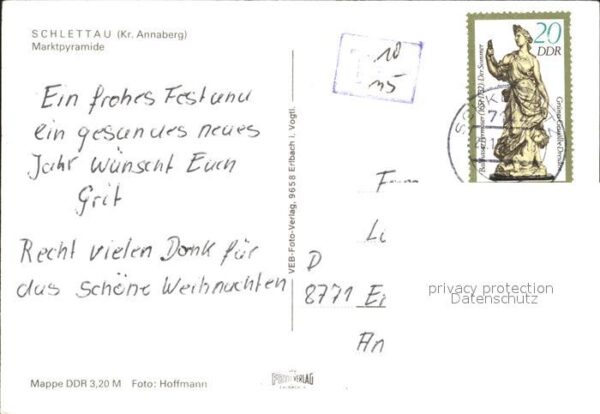 SCHLETTAU (Kr. Annaberg)
Marktpyramide
Ein frohes Fest und
ein gesundes neues
Jahr wünscht Euch
Grit
Recht vielen Dank für
das schöne Weihnachten
Mappe DDR 3,20 M Foto: Hoffmann
VEB-Foto-Verlag, 9658 Erlbach i. Vogtl.
FOTO-VERLAG
10
20
DDR
Balthasar Permoser (1651-1732) Der Sommer
Grünes Gewölbe Dresden
D
8771
privacy protection
Datenschutz